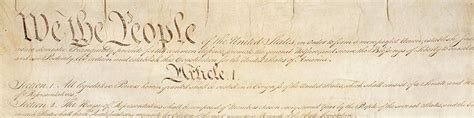 We the People of the United States, in Order to form a more perfect Union, establish
domestic Tranquility, provide for the common defence, promote the general Welfare, and secure the Blessings of Liberty to
and our Posterity, do ordain and establish this Constitution for the United States of America.
Article. I
Section. 1. All legislative Powers herein granted shall be vested in a Congress of the United States, which shall consist of a Senate and
of Representatives.
Section. 2. The House of Representatives shall be composed of Members chosen every second Year by the People of the several States, and the